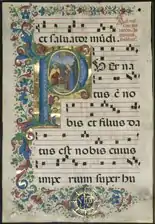 et salvator mūdi
P uer na
tus ē no
bis et filius da
tus est nobis cuius
impe rium super hu